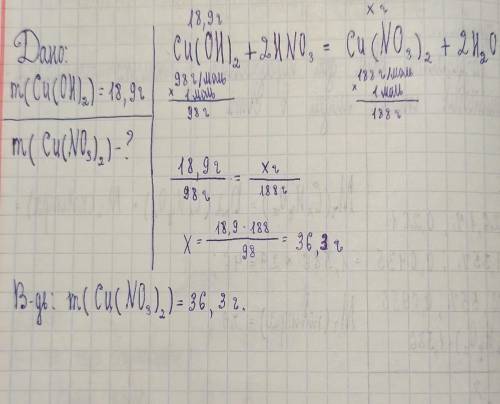 Дано:
m(Cu(OH)₂)=18,9г
m(Cu(NO₃)₂)-?
18,9г x г
Cu(OH)₂ + 2HNO₃ = Cu(NO₃)₂ + 2H₂O
98 г/моль 188 г/моль
× 1 моль × 1 моль
98 г 188 г
18,9г / 98 г = x г / 188 г
X = 18,9 · 188 / 98 = 36,3 г
В-дь: m(Cu(NO₃)₂)=36,3 г.